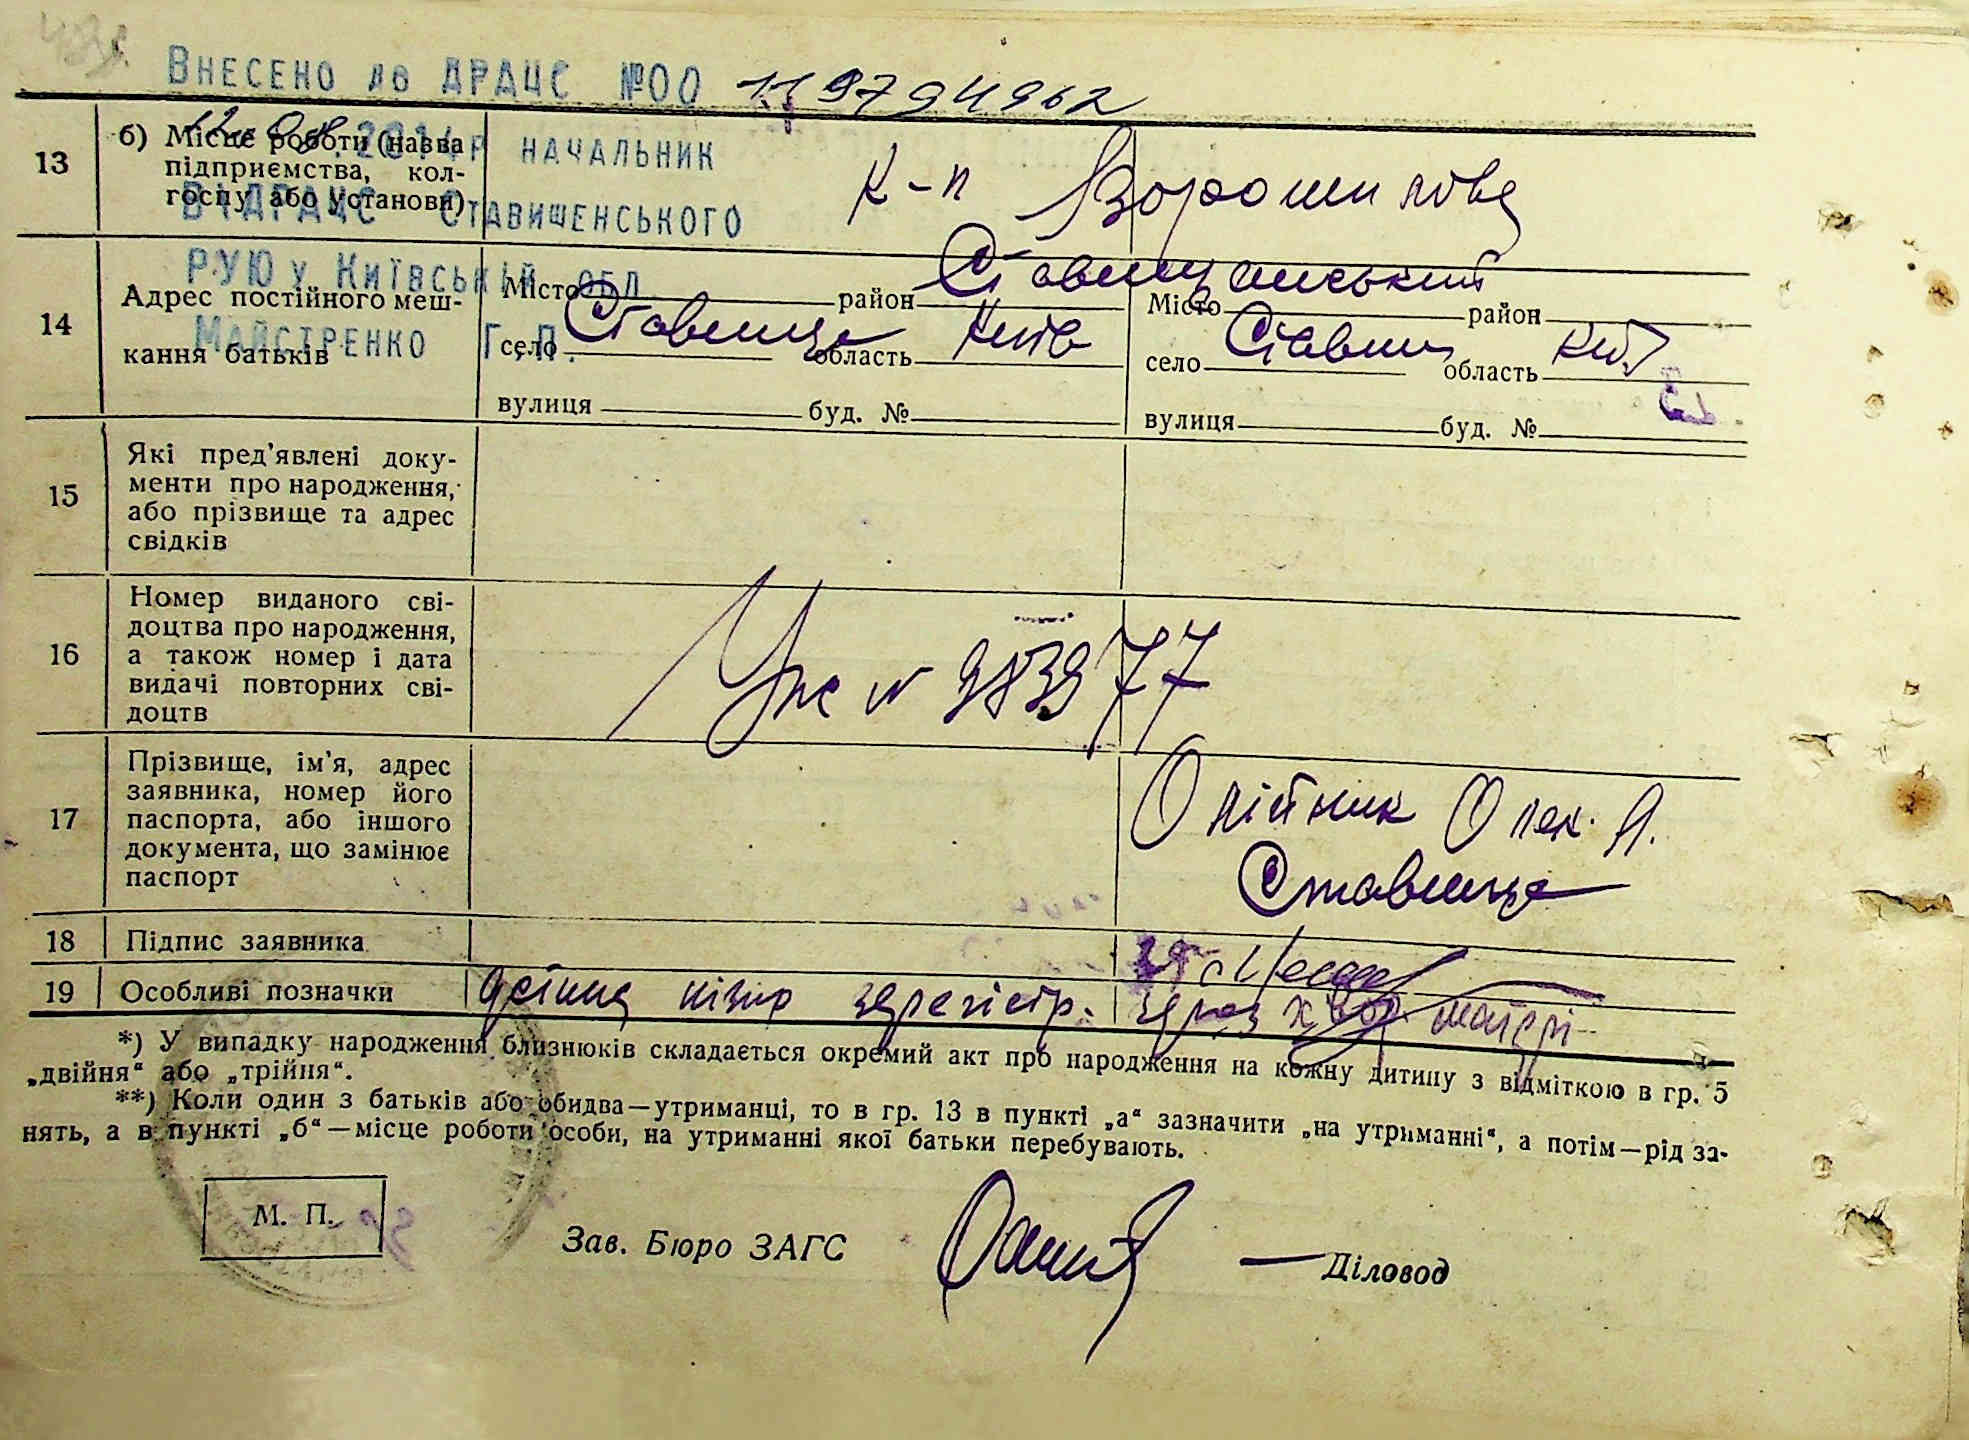 Внесено до ДРАЦС №00 119794962
12.08.2014р начальник
ВІДРАЦС Ставишенського
РУЮ у Київській обл
Майстренко Г.П.
13 б) Місце роботи (назва
підприємства, кол-
госпу або установи)
К-п Ворошилова
14 Адрес постійного меш-
кання батьків
Місто район Ставищанський
село Ставище область Київ
вулиця буд. №
Місто район
село Ставищ область Київ
вулиця буд. №
15 Які пред'явлені доку-
менти про народження,
або прізвище та адрес
свідків
16 Номер виданого сві-
доцтва про народження,
а також номер і дата
видачі повторних сві-
доцтв
№ 983977
17 Прізвище, ім'я, адрес
заявника, номер його
паспорта, або іншого
документа, що замінює
паспорт
Олійник Олек. Я.
Ставище
18 Підпис заявника
19 Особливі позначки
дитина пізно зарегістр. через хвор. матері
*) У випадку народження близнюків складається окремий акт про народження на кожну дитину з відміткою в гр. 5
„двійня“ або „трійня“.
**) Коли один з батьків або обидва—утриманці, то в гр. 13 в пункті „а“ зазначити „на утриманні“, а потім—рід за-
нять, а в пункті „б“—місце роботи особи, на утриманні якої батьки перебувають.
М. П.
Зав. Бюро ЗАГС
Діловод